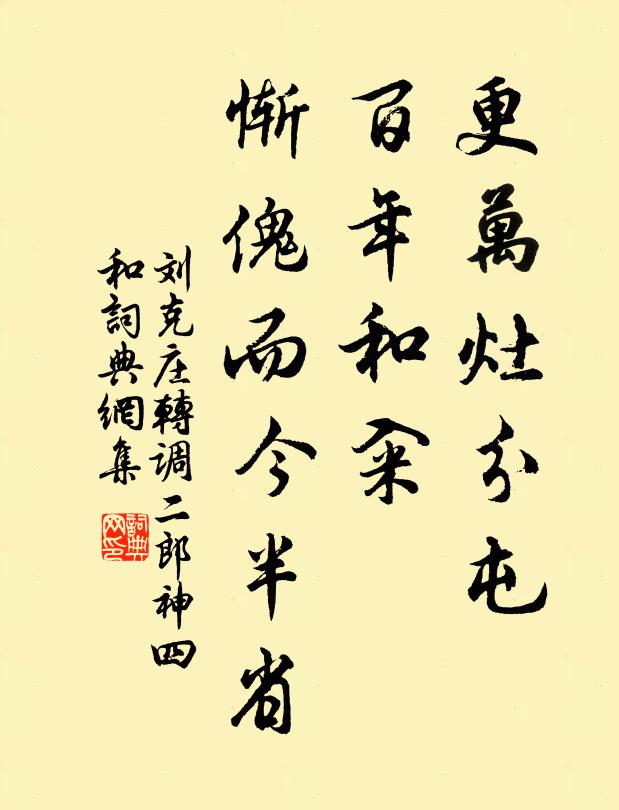 更萬灶分屯
百年和籴
慚愧而今半省
刘克庄轉调二郎神四
和詞典網集
詞典
网印